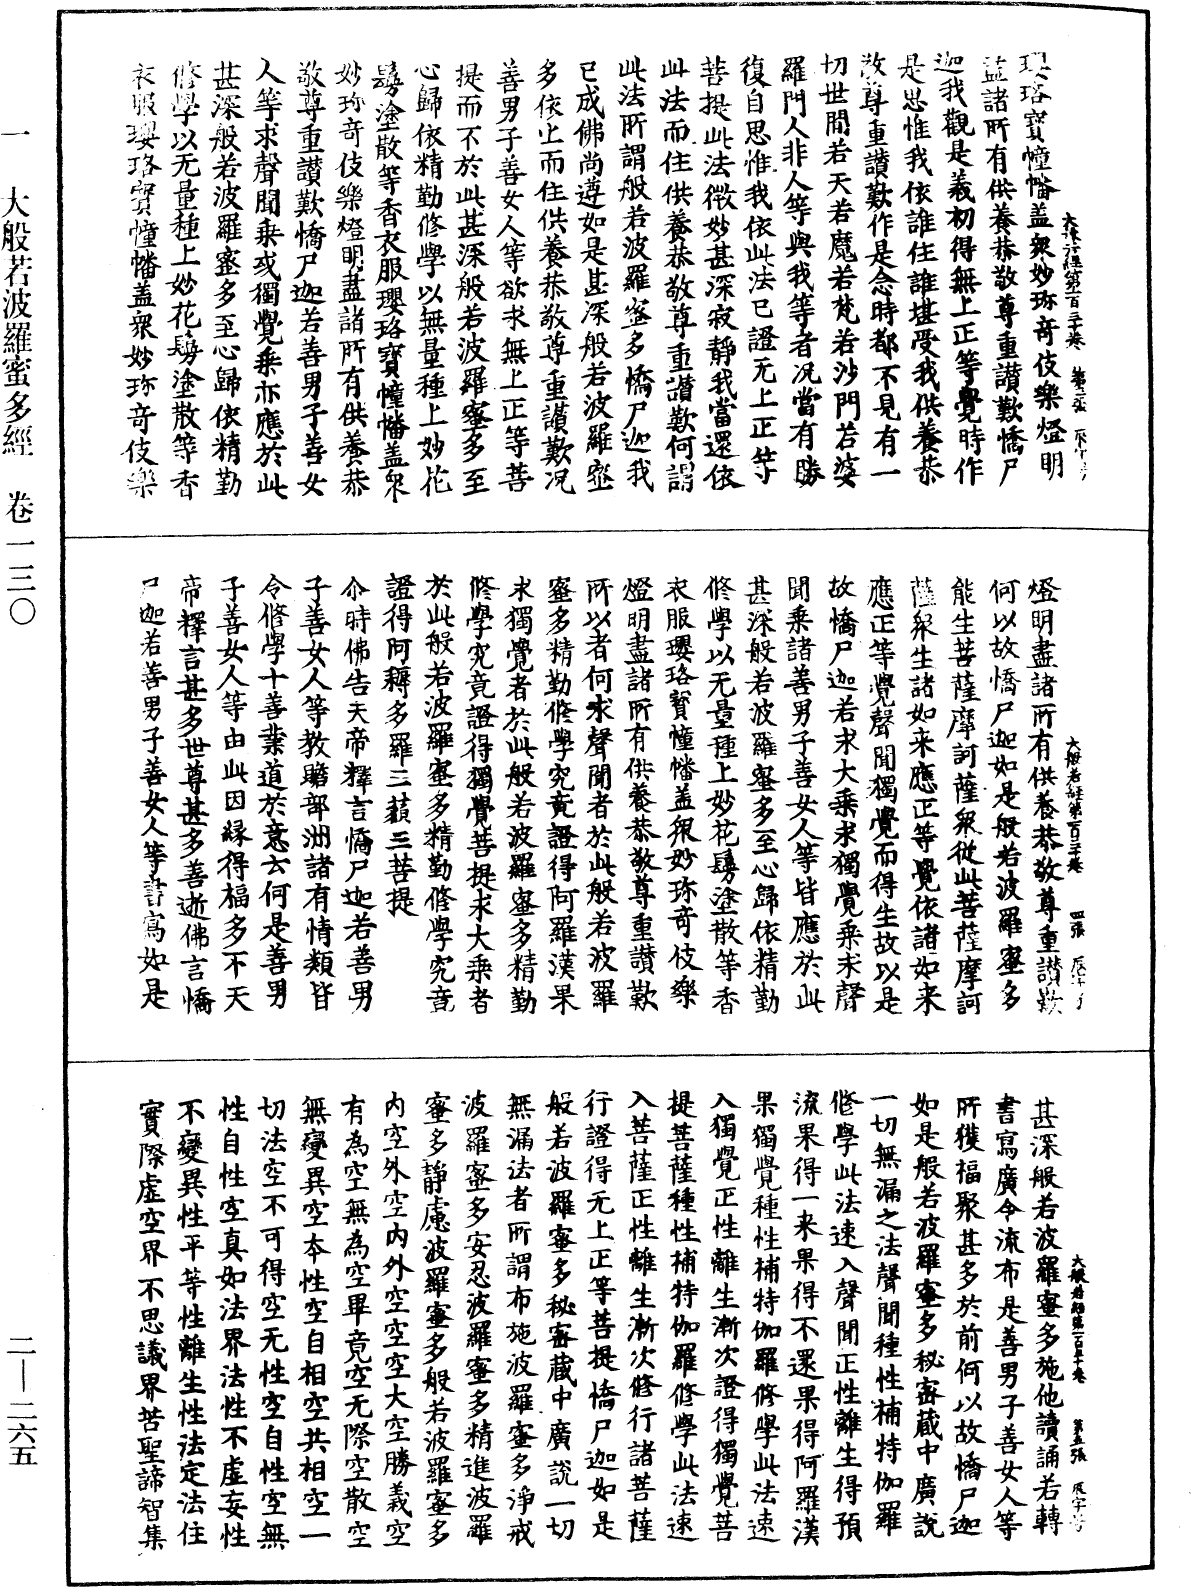 瓔珞寶幢幡蓋衆妙珎奇伎樂燈明
盡諸所有供養恭敬尊重讃歎憍尸
迦我觀是義初得無上正等覺時作
是思惟我依誰住誰堪受我供養恭
敬尊重讃歎作是念時都不見有一
切世間若天若魔若梵若沙門若婆
羅門人非人等與我等者况當有勝
復自思惟我依此法已證无上正等
菩提此法微妙甚深寂靜我當還依
此法而住供養恭敬尊重讃歎何謂
此法所謂般若波羅蜜多憍尸迦我
已成佛尚遵如是甚深般若波羅蜜
多依止而住供養恭敬尊重讃歎况
善男子善女人等欲求無上正等菩
提而不於此甚深般若波羅蜜多至
心歸依精勤修學以無量種上妙花
鬘塗散等香衣服瓔珞寶幢幡蓋衆
妙珎奇伎樂燈明盡諸所有供養恭
敬尊重讃歎憍尸迦若善男子善女
人等求聲聞乘或獨覺乘亦應於此
甚深般若波羅蜜多至心歸依精勤
修學以无量種上妙花鬘塗散等香
衣服瓔珞寶幢幡蓋衆妙珎奇伎樂
大般若經第一百三十卷 第三張
燈明盡諸所有供養恭敬尊重讃歎
何以故憍尸迦如是般若波羅蜜多
能生菩薩摩訶薩衆從此菩薩摩訶
薩衆生諸如来應正等覺依諸如来
應正等覺聲聞獨覺而得生故以是
故憍尸迦若求大乘求獨覺乘求聲
聞乘諸善男子善女人等皆應於此
甚深般若波羅蜜多至心歸依精勤
修學以无量種上妙花鬘塗散等香
衣服瓔珞寶幢幡蓋衆妙珎奇伎樂
燈明盡諸所有供養恭敬尊重讃歎
所以者何求聲聞者於此般若波羅
蜜多精勤修學究竟證得阿羅漢果
求獨覺者於此般若波羅蜜多精勤
修學究竟證得獨覺菩提求大乘者
於此般若波羅蜜多精勤修學究竟
證得阿耨多羅三藐三菩提
尒時佛告天帝釋言憍尸迦若善男
子善女人等教贍部洲諸有情類皆
令修學十善業道於意云何是善男
子善女人等由此因緣得福多不天
帝釋言甚多世尊甚多善逝佛言憍
尸迦若善男子善女人等書寫如是
大般若經第一百三十卷 四張
甚深般若波羅蜜多施他讀誦若轉
書寫廣令流布是善男子善女人等
所獲福聚甚多於前何以故憍尸迦
如是般若波羅蜜多秘密蔵中廣說
一切無漏之法聲聞種性補特伽羅
修學此法速入聲聞正性離生得預
流果得一来果得不還果得阿羅漢
果獨覺種性補特伽羅修學此法速
入獨覺正性離生漸次證得獨覺菩
提菩薩種性補特伽羅修學此法速
入菩薩正性離生漸次修行諸菩薩
行證得无上正等菩提憍尸迦如是
般若波羅蜜多秘密蔵中廣說一切
無漏法者所謂布施波羅蜜多淨戒
波羅蜜多安忍波羅蜜多精進波羅
蜜多靜慮波羅蜜多般若波羅蜜多
内空外空内外空空空大空勝義空
有為空無為空畢竟空无際空散空
無變異空本性空自相空共相空一
切法空不可得空无性空自性空無
性自性空真如法界法性不虛妄性
不變異性平等性離生性法定法住
實際虛空界不思議界苦聖諦智集
大般若經第一百三十卷 第五張 辰字号
一 大般若波羅蜜多經 卷一三〇
二—二六五